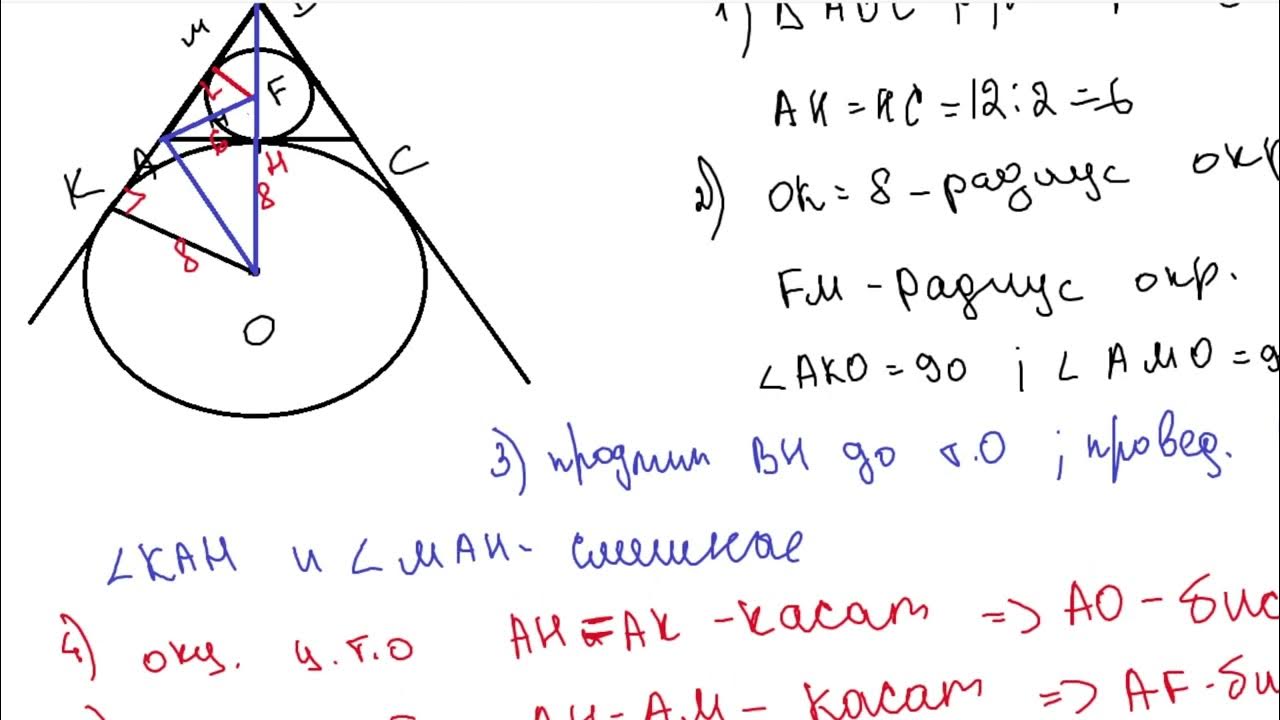 M
F
A
6
H
8
C
K
8
O
1) Δ
AH = HC = 12 : 2 = 6
2) OK = 8 - радиус окр
FM - радиус окр.
∠AKO = 90 ; ∠AMO = 9
3) продлим BH до т.O ; провед.
∠KAH и ∠MAH - смежные
4) окр. ц.т.O AH = AK - касат => AO - бис
AH = AM - касат => AF - би